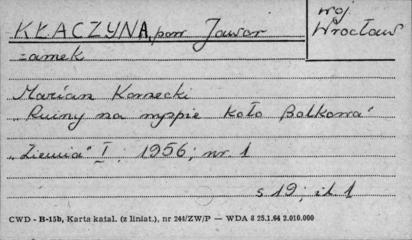 KŁACZYNA, pow Jawor
woj
Wrocław
zamek
Marian Kornecki
„Ruiny na wyspie koło Bolkowa"
„Ziemia" I. 1956, nr. 1
s 19; il. 1
CWD - B-15b, Karta katal. (z liniat.), nr 244/ZW/P — WDA 8 25.1.64 2.010.000